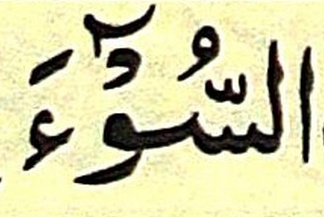 السُّوْٓءَ